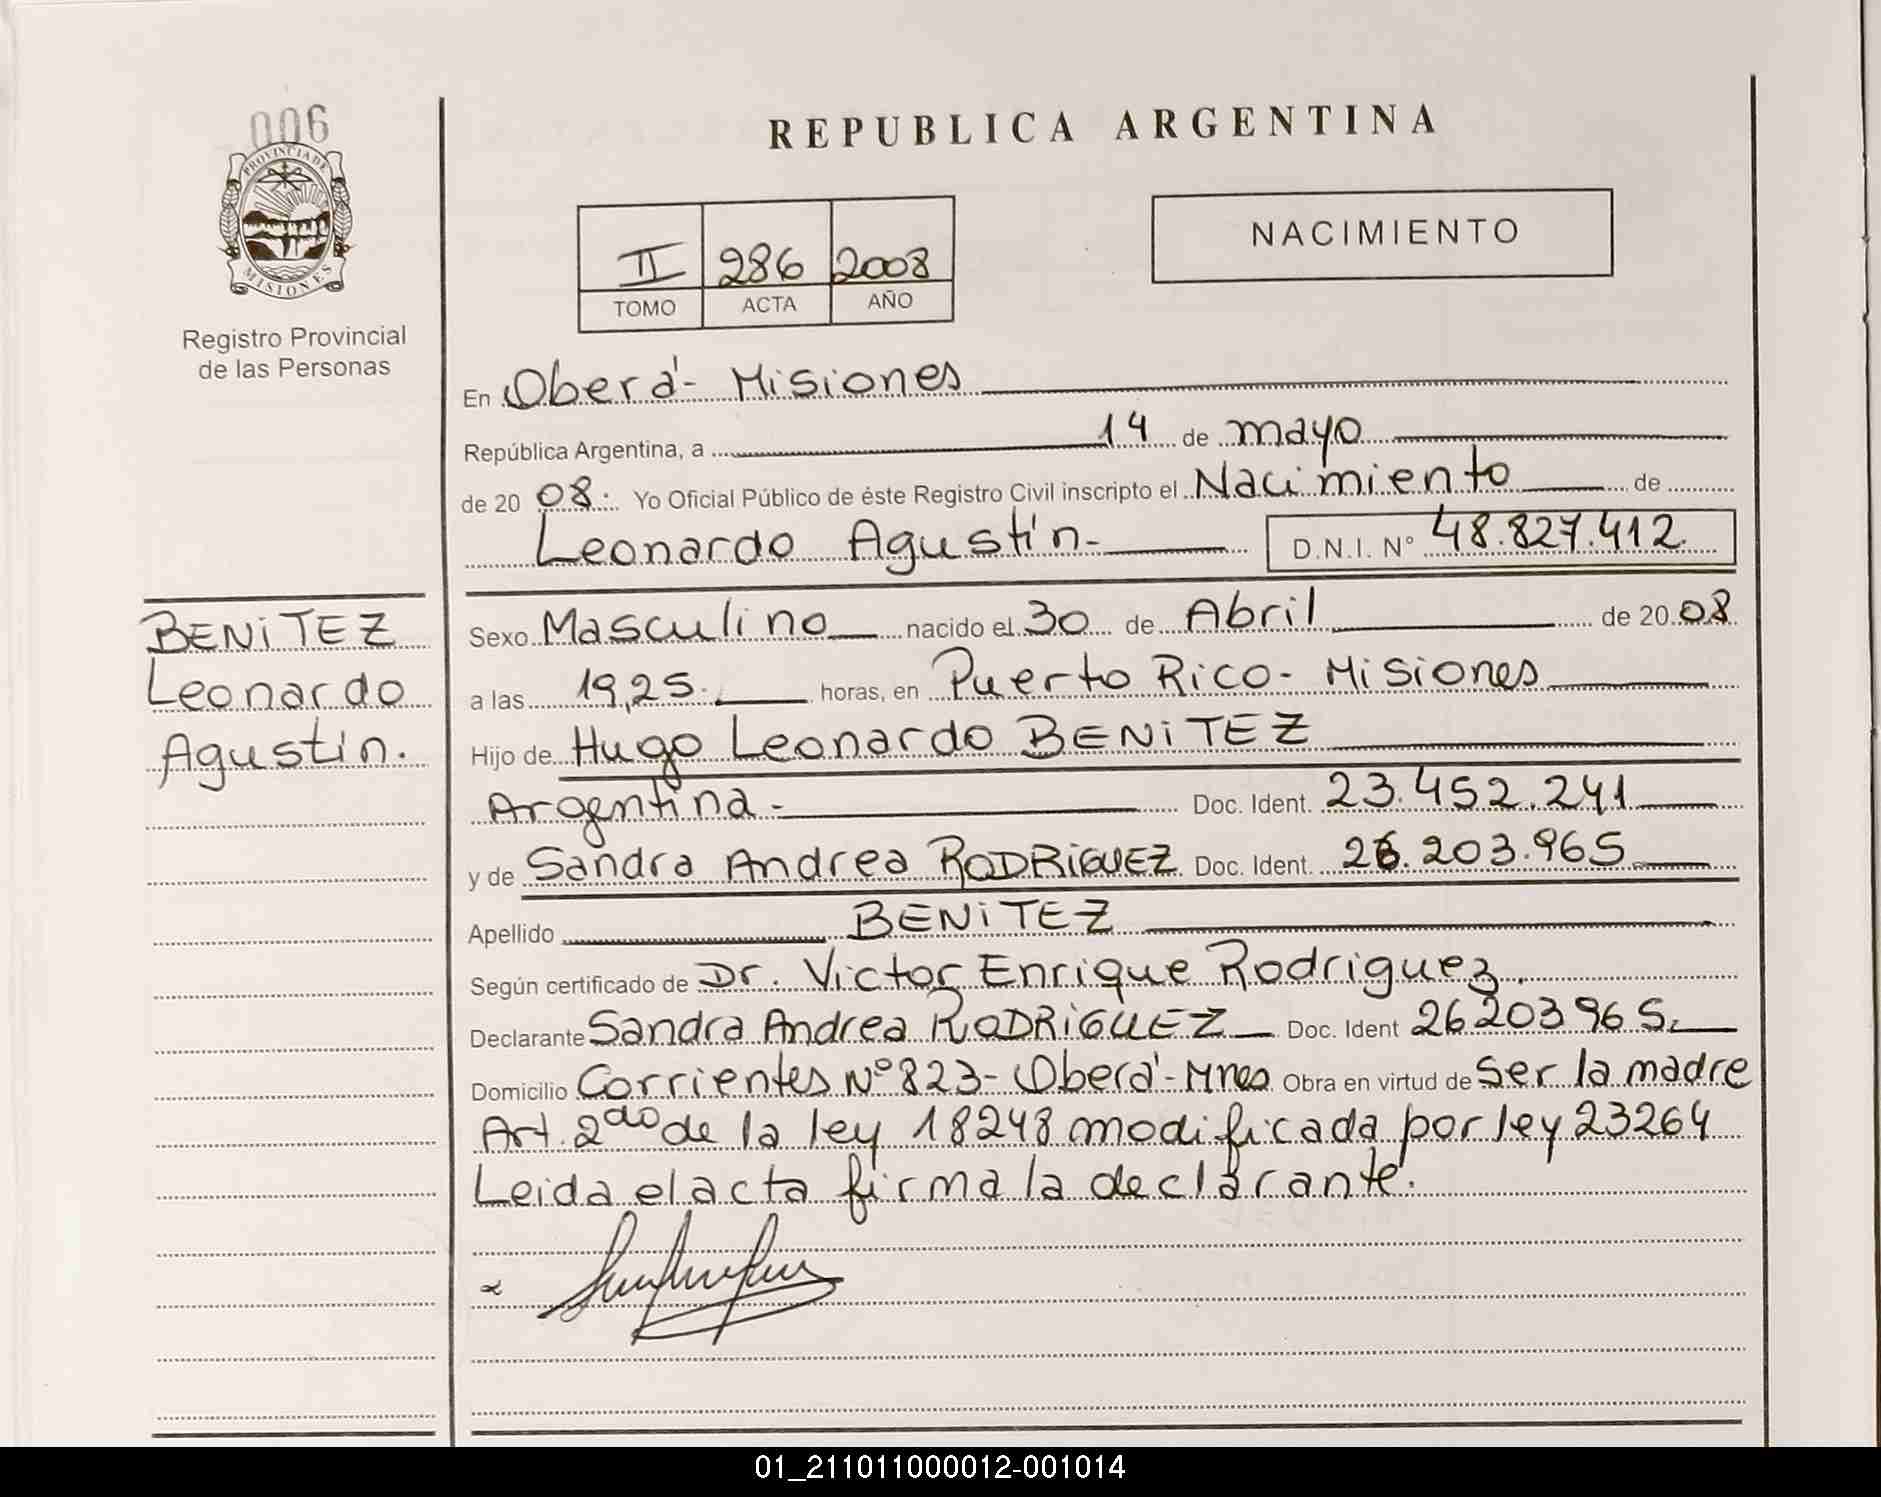 006
PROVINCIA DE
MISIONES
Registro Provincial
de las Personas
BENiTEZ
Leonardo
Agustín.
REPUBLICA ARGENTINA
II 286 2008
TOMO ACTA AÑO
NACIMIENTO
En Oberá - Misiones
República Argentina, a 14 de mayo
de 20 08. Yo Oficial Público de éste Registro Civil inscripto el Nacimiento de
Leonardo Agustín - D.N.I. N° 48.827.412
Sexo Masculino nacido el 30 de Abril de 20 08
a las 19,25. horas, en Puerto Rico - Misiones
Hijo de Hugo Leonardo BENiTEZ
Argentina - Doc. Ident. 23.452.241
y de Sandra Andrea RODRiGUEZ Doc. Ident. 26.203.965
Apellido BENiTEZ
Según certificado de Dr. Victor Enrique Rodriguez.
Declarante Sandra Andrea RODRiGUEZ Doc. Ident 26203965
Domicilio Corrientes N° 823 - Oberá - Mnes Obra en virtud de Ser la madre
Art. 2do de la ley 18248 modificada por ley 23264
Leida el acta firma la declarante.
01_211011000012-001014